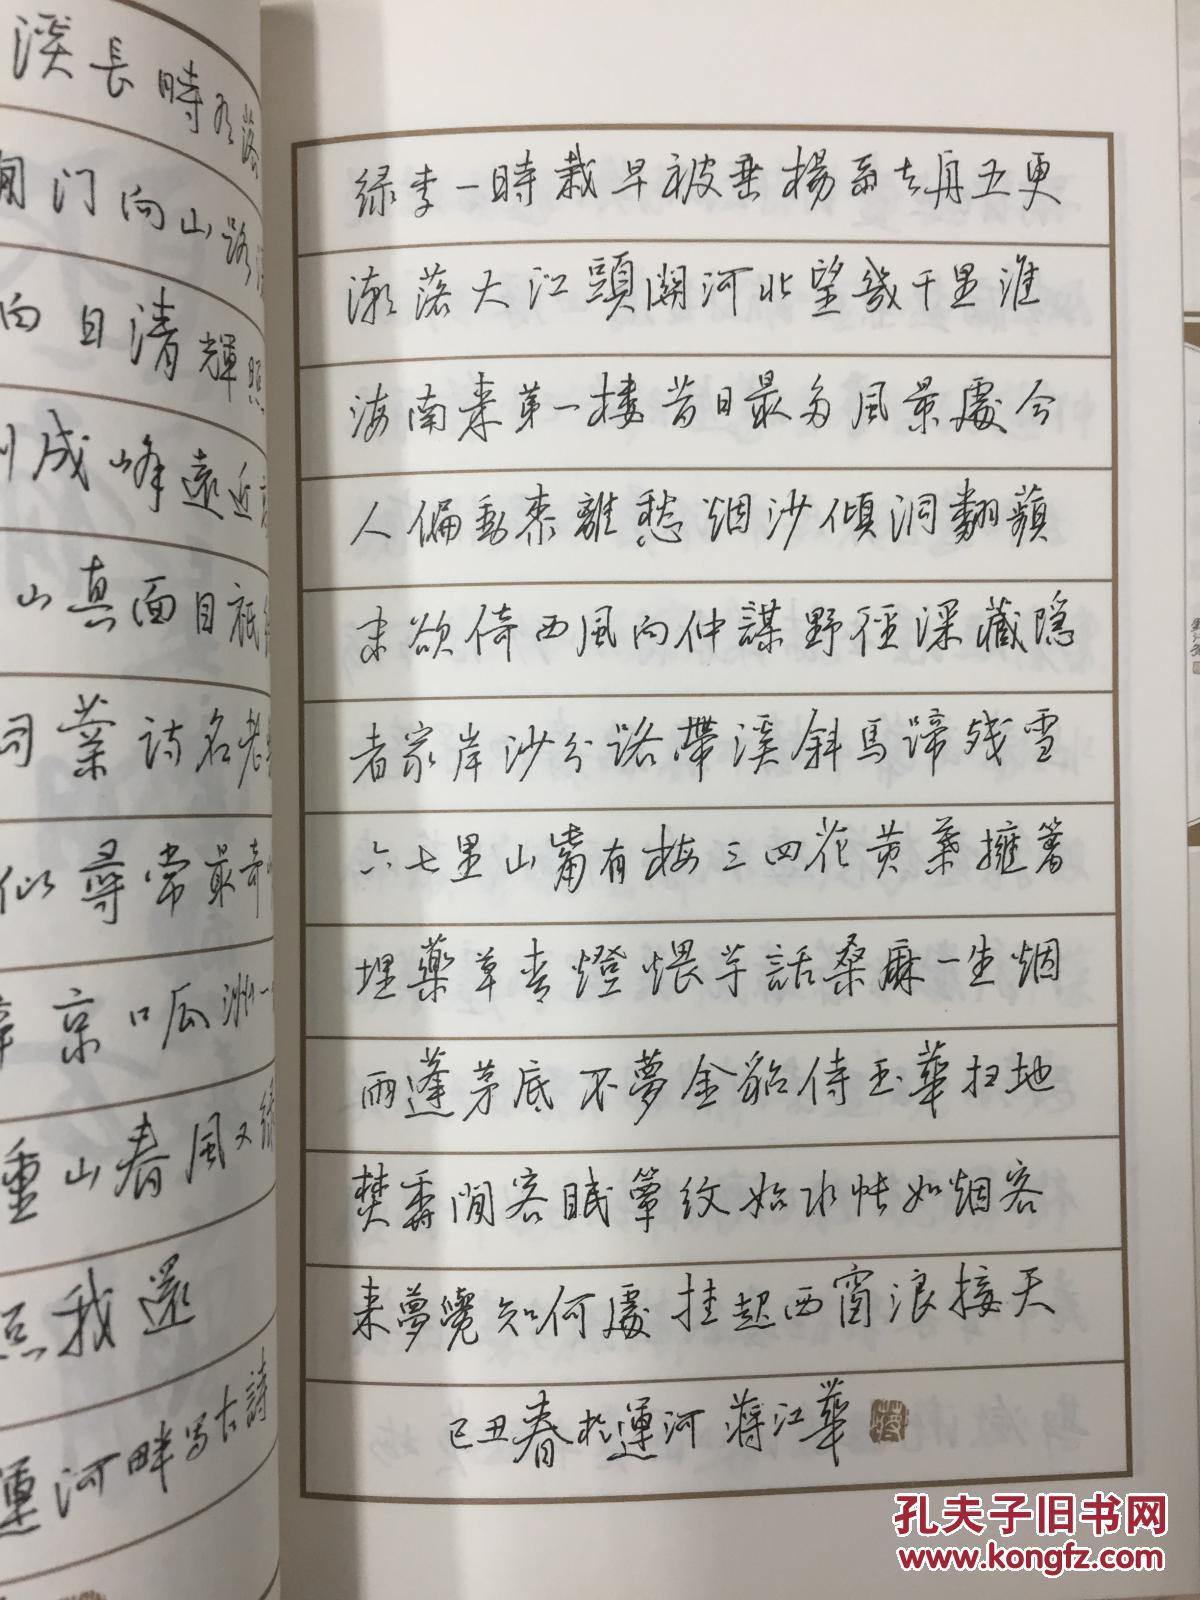 溪長時有落
閒门向山路
向日清輝照
成峰遠近
山真面目祇
同葉诗名老
似尋常最奇
京口瓜洲一
重山春風又绿
照我還
運河畔写古詩
绿李一時栽早被垂楊去舟五更
潮落大江頭關河北望幾千里淮
海南来第一樓昔日最多風景處今
人偏動黍離愁烟沙傾洞翻蘋
末欲倚西風问仲謀野徑深藏隐
者家岸沙分路帶溪斜馬蹄残雪
六七里山觜有梅三四花黄葉擁箸
埋藥草青燈煨芋話桑麻一生烟
雨蓬茅底不夢金貂侍玉華扫地
焚香閒客眠簟纹如水帐如烟客
来夢覺知何處挂起西窗浪接天
己丑春於運河 蒋江華
孔夫子旧书网
www.kongfz.com